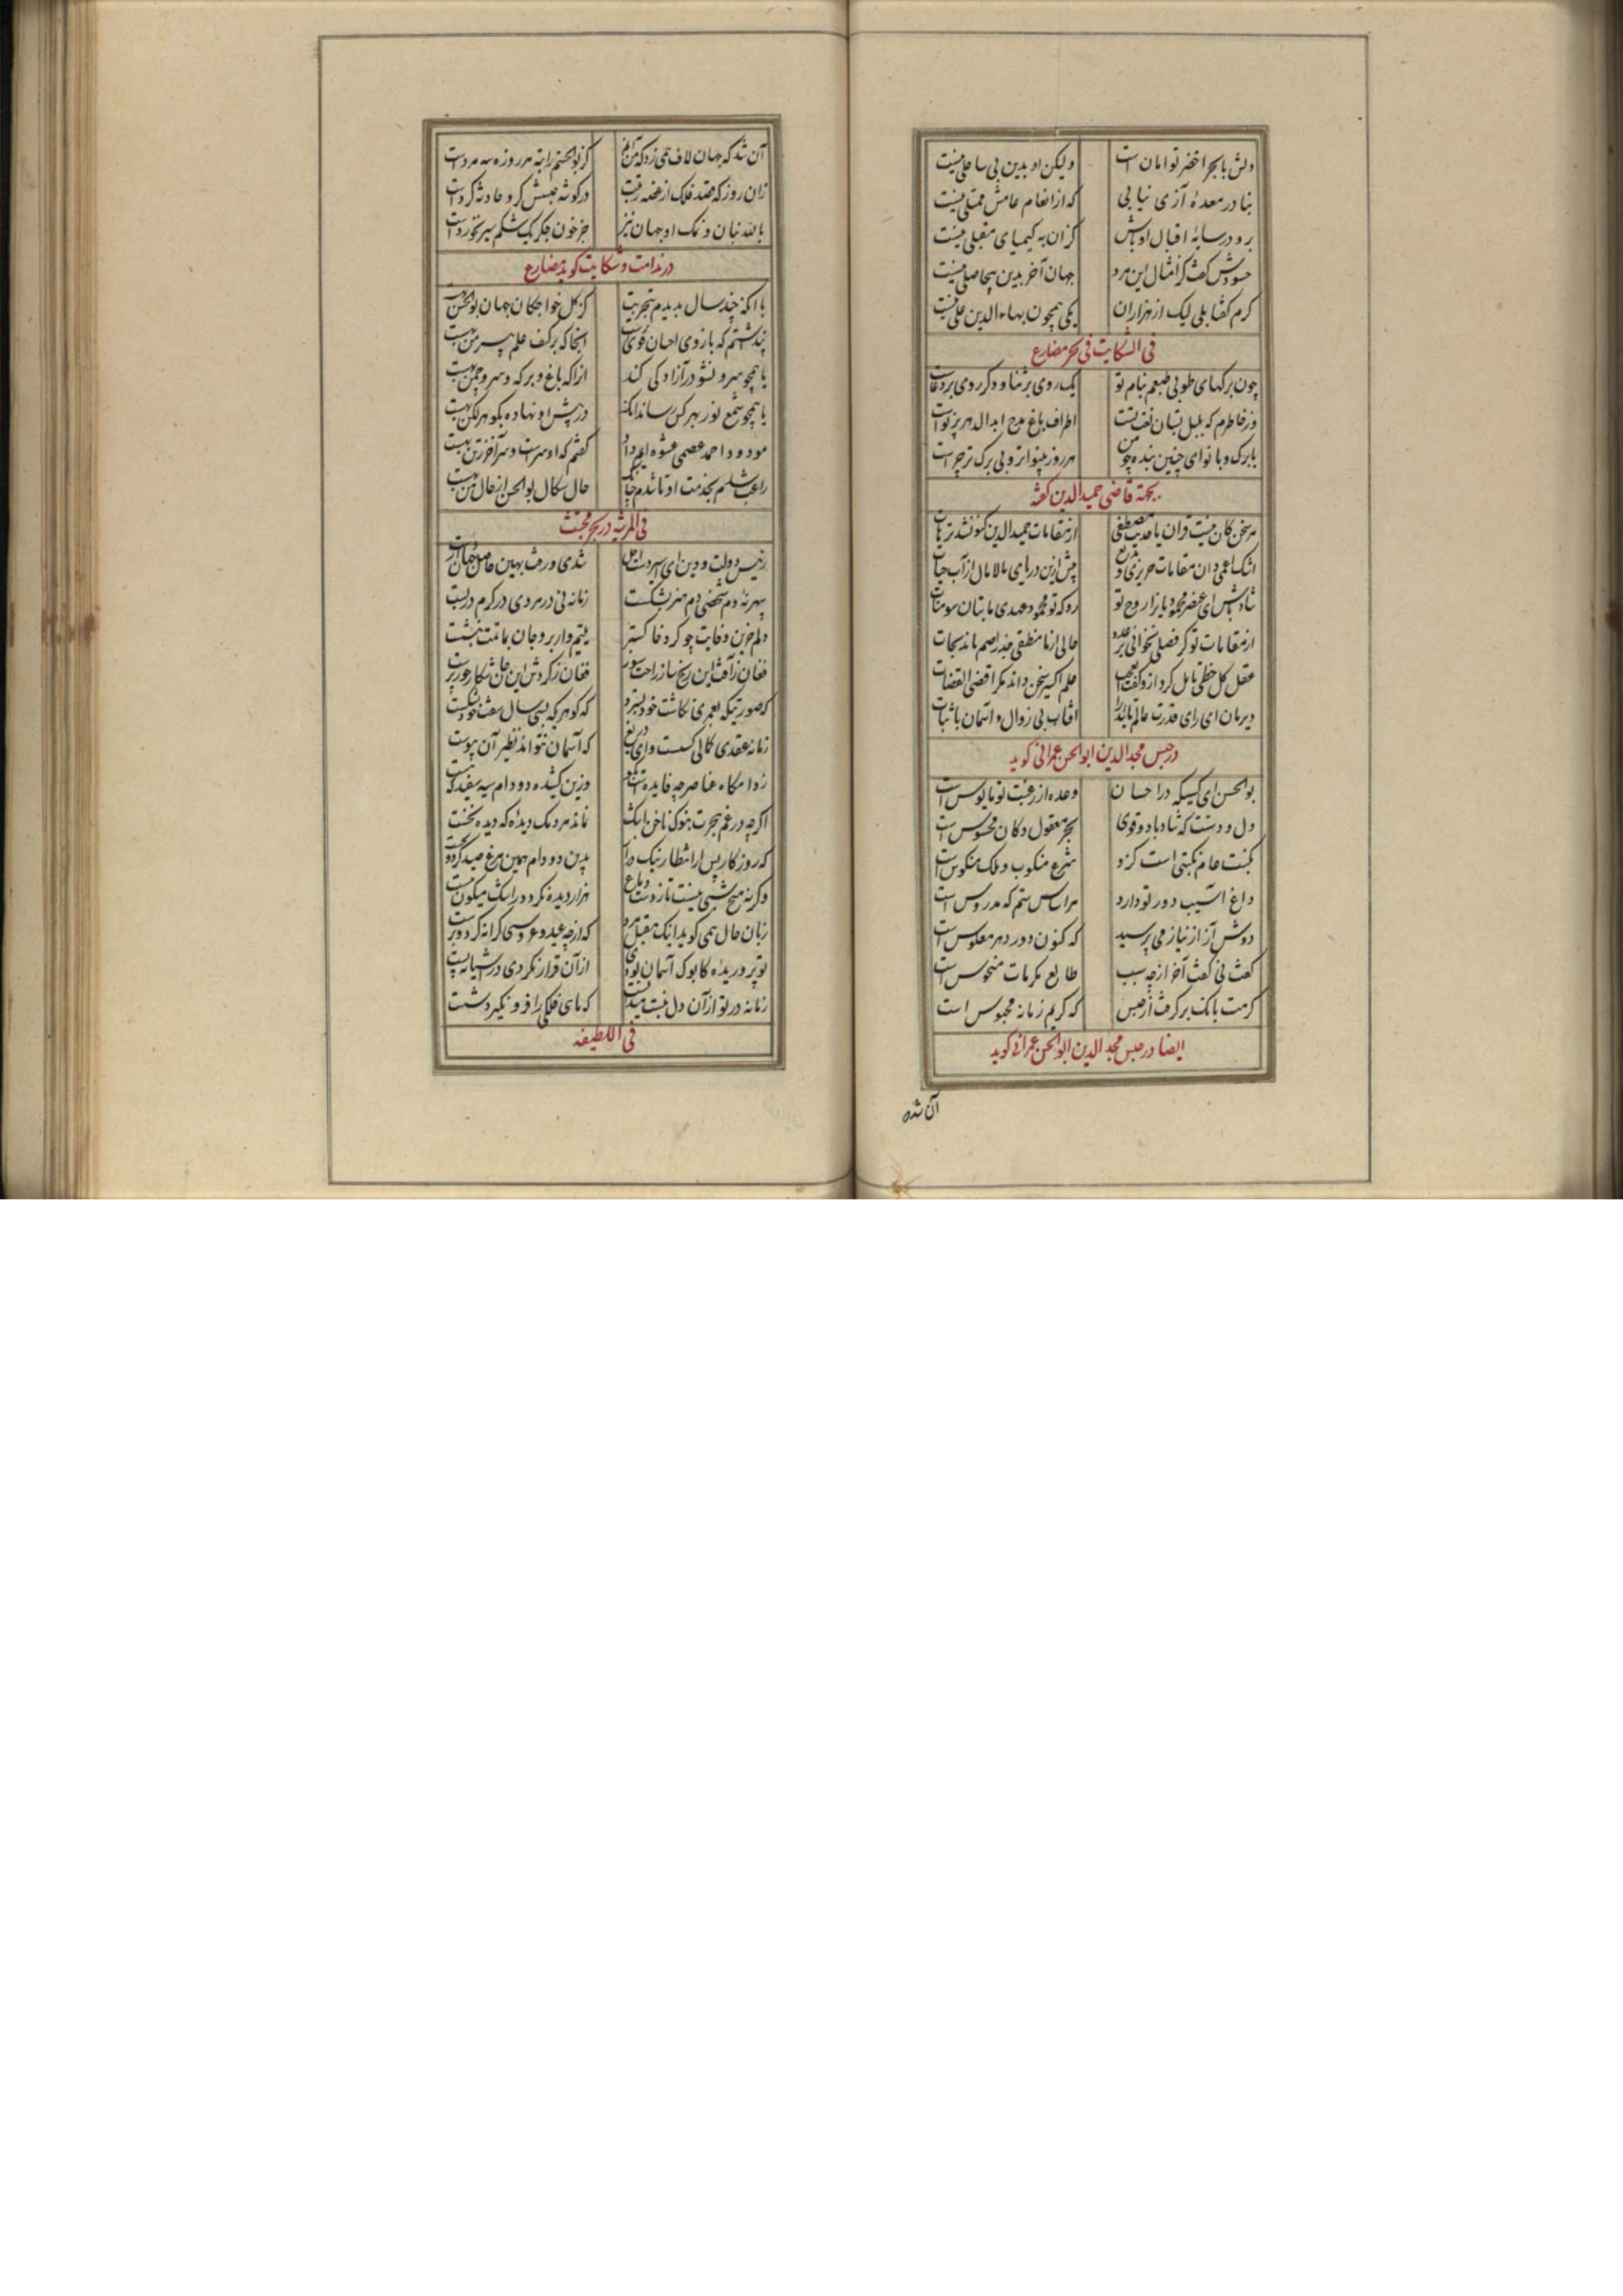 دلش با بحر اخضر توامان است
ولیکن او بدین بی ساحلی نیست
بنا در معدهٔ آزی نیابی
که از انعام عامش ممتلی نیست
برو در سایهٔ اقبال او باش
کزان به کیمیای مقبلی نیست
حسودش گفت کز امثال این مرد
جهان آخر بدین بیحاصلی نیست
کرم گفتا بلی لیک از هزاران
یکی همچون بهاء الدین علی نیست
فی الشکایت فی بحر مضارع
چون برگهای طوبی طبعم بنام تو
یک روی بر ثنا و دگر روی بر دعاست
وز خاطرم که بلبل بستان نعت تست
اطراف باغ مدح ابد الدهر پر نواست
با برگ و با نوای چنین بنده چو من
هر روز بینواتر و بی برگ تر چراست
بجهة قاضی حمید الدین گفته
هر سخن کان نیست قران یا حدیث مصطفی
از مقامات حمید الدین کنون شد ترهات
اشک اعمی دان مقامات حریری و بدیع
پیش ازین دریای مالامال از آب حیات
شاد باش ای عنصر محمودیانرا روح تو
رو که تو محمود عهدی ما بتان سومنات
از مقامات تو گر فصلی بخوانی بر عدو
حالی از نا منطقی جذر اصم یابد نجات
عقل کل خطی تامل کرد ازو گفت ای عجب
علم اکسیر سخن داند مگر اقضی القضات
دیر مان ای رای قدرت عالم تایید را
افتاب بی زوال و آسمان با ثبات
در حبس مجد الدین ابوالحسن عمرانی گوید
بوالحسن ای کسیکه در احسان
وعده از رغبت تو مایوس است
دل و دستت که شاد باد و قوی
بحر معقول و کان محسوس است
نکبت عام نکبتی است کزو
شرع منکوب و ملک منکوس است
داغ آسیب دور تو دارد
هر اساس ستم که مدروس است
دوش آز از نیاز می پرسید
که کنون دور دهر معکوس است
گفت نی گفت آخر از چه سبب
طالع مکرمات منحوس است
کرمت بانک بر گرفت از حبس
که کریم زمانه محبوس است
ایضا در حبس مجد الدین ابوالحسن عمرانی گوید
آن شد که
آن شد که جهان لاف همی زد که من آنم
کز بوالحسنم راتبه هر روزه سه مرد است
زان روز که قصد فلک از غصه رتبت
در گوشه حبسش گرو حادثه کرد است
بالله بنان و نمک او جهان نیز
جز خون جگر یک شکم سیر نخورد است
در ندامت و شکایت گوید بمضارع
با آنکه چند سال بدیدم بتجربت
کز کل خواجگان جهان بوالحسن بهست
پنداشتم که بازوی احسان قوی ترست
آنجا که بر کتف علم پیرهن بهست
یا همچو سرو نشو در آزادگی کند
آنرا که باغ و برکه و سرو و چمن بهست
یا همچو شمع نور بهر کس رساند آنکه
در پیش او نهاده بگوهر لگن بهست
مودود احمد عصمی عشوه ایم داد
گفتم که او سرست و سر آخر ز تن بهست
راغب شدم بخدمت او تا شدم چنانک
حال سگان بوالحسن از حال من بهست
فی المرثیه در بحر مجتث
رئیس دولت و دین ای اسیر دست اجل
شدی و رفت بهین حاصل جهان از دست
سپهر نه دم شخصی دم هنر بشکست
زمانه نی در مردی در کرم دربست
دلم حزین وفایت چو کرد فا گستر
یتیم وار بر و جان بماتمت بنشست
فغان ز آفت این رنج ساز راحت سوز
فغان ز گردش این جان شکار جور پرست
که صورتیکه بعمری نگاشت خود بسترد
که گوهر که بسی سال سفت خود بشکست
زمانه عقدی کانی گسست وای دریغ
که آسمان نتواند نظیر آن پیوست
ز دامگاه عناصر چه فایده ست بگو
وزین کشیده دو دام سیه سفید که هست
اگر چه در غم هجرت بنوک ناخن اشک
نماند مردمک دیده که دیده نخست
که روزگار پس از انتظار نیک دراز
بدین دو دام همین مرغ صید کرد و بجست
وگرنه هیچ شبی نیست تا ز دست وداع
هزار دیده نگردد ز اشک میگون مست
زبان حال همی گوید اینک مقبل مرد
که از چه عید و عروسی کرانه کرد و برست
تو پروریده کابوک آسمان بودی
از آن قرار نکردی در آشیانه پست
زمانه در تو از آن دل نبست میدانست
که ماهی فلکی را فرو نگیرد شست
فی اللطیفه